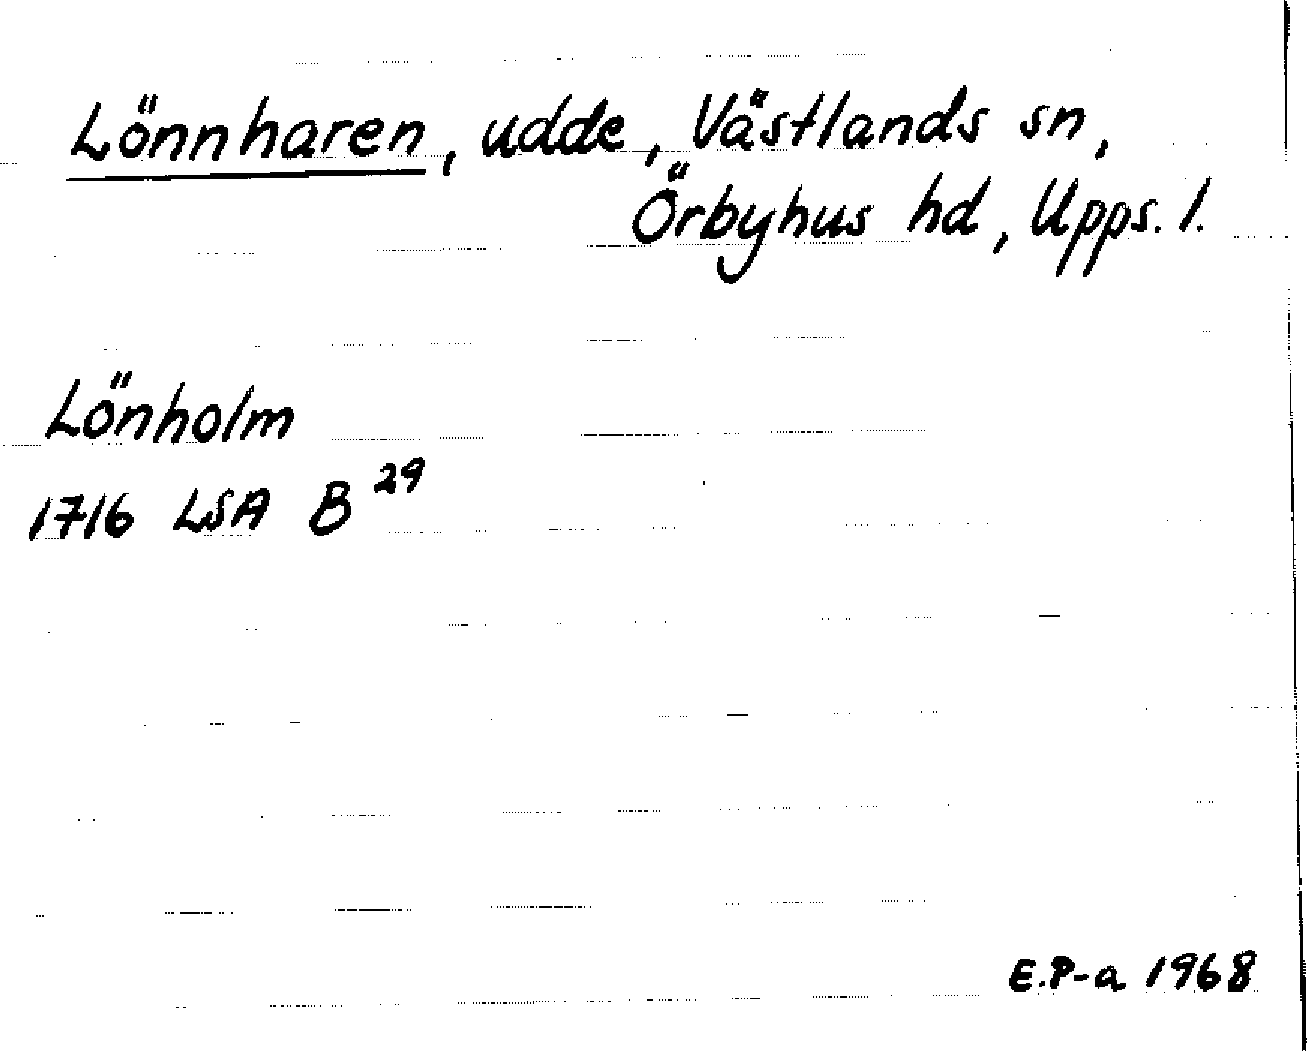 Lönnharen, udde, Västlands sn,
Örbyhus hd, Upps. l.
Lönholm
1716 LSA B 29
E.P-a 1968